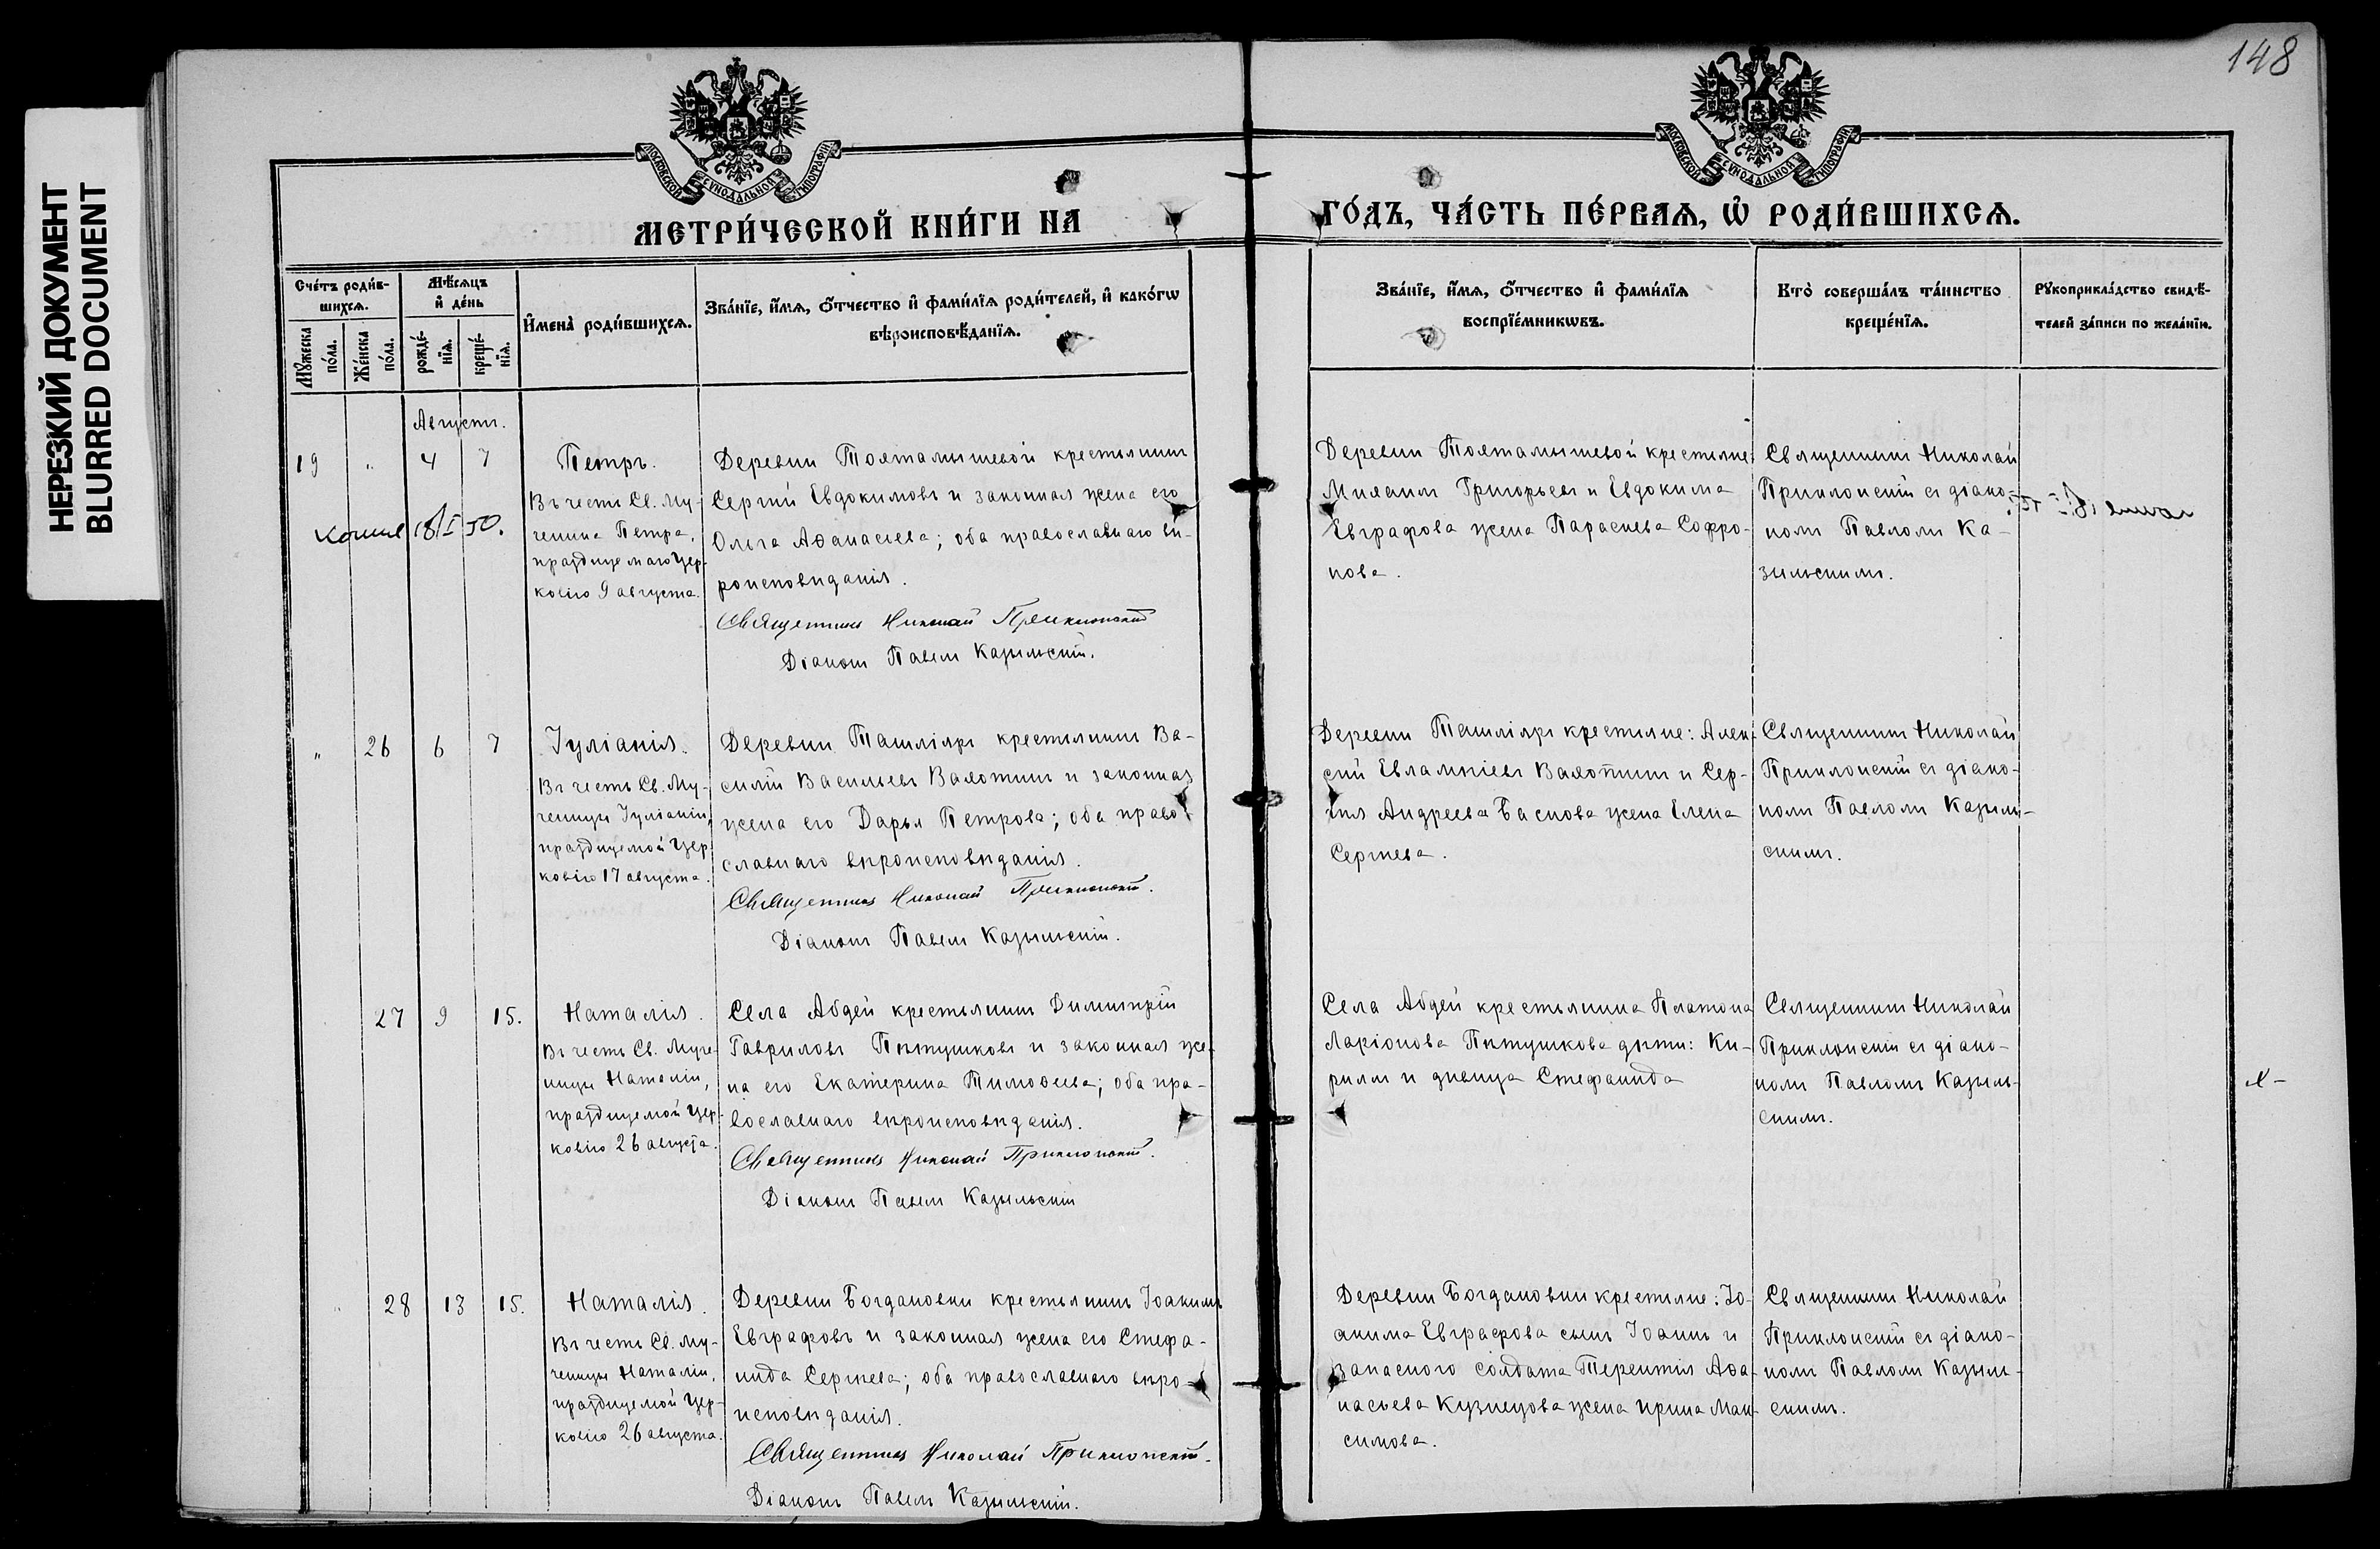 148
НЕРЕЗКИЙ ДОКУМЕНТ
BLURRED DOCUMENT
МОСКОВСКОЙ СѴНОДАЛЬНОЙ ТИПОГРАФІИ
МОСКОВСКОЙ СѴНОДАЛЬНОЙ ТИПОГРАФІИ
МЕТРИ́ЧЕСКОЙ КНИ́ГИ НА
ГО́ДЪ, ЧА́СТЬ ПЕ́РВАѦ, Ѡ҆ РОДИ́ВШИХСѦ.
Сче́тъ роди́в-
шихсѧ.
Мꙋ́жеска
по́ла.
Же́нска
по́ла.
Мѣ́сѧцъ
и҆ де́нь
рожде́-
нїѧ.
креще́-
нїѧ.
И҆мена̀ роди́вшихсѧ.
Зва́нїе, и҆́мѧ, ѻ҆́тчество и҆ фами́лїѧ роди́телей, и҆ како́гѡ
вѣроисповѣ́данїѧ.
Зва́нїе, и҆́мѧ, ѻ҆́тчество и҆ фами́лїѧ
воспрїе́мникѡвъ.
Кто̀ соверша́лъ та́инство
креще́нїѧ.
Рꙋкоприкла́дство свидѣ́-
телей за́писи по жела́нїю.
Августъ.
19 " 4 7
Петръ.
Въ честь Св. Му-
ченика Петра,
празднуемаго Цер-
ковію 9 августа.
18/I 50.
Сергій Евдокимовъ и законная жена его
Ольга Аѳанасіева; оба православнаго вѣ-
роисповѣданія.
Священникъ Николай Приклонскій
Діаконъ Павелъ Казыльскій.
Михаилъ Григорьевъ и Евдокима
Евграфова жена Параскева Софро-
нова.
Священникъ Николай
Приклонскій съ діако-
номъ Павломъ Ка-
зыльскимъ.
" 26 6 7
Іуліанія.
Въ честь Св. Му-
ченицы Іуліаніи,
празднуемой Цер-
ковію 17 августа.
Деревни Ташліяръ крестьянинъ Ва-
силій Васильевъ Валотинъ и законная
жена его Дарья Петрова; оба право-
славнаго вѣроисповѣданія.
Священникъ Николай Приклонскій.
Діаконъ Павелъ Казыльскій.
Деревни Ташліяръ крестьяне: Алек-
сѣй Евлампіевъ Валотинъ и Сер-
гія Андреева Баскова жена Елена
Сергіева.
Священникъ Николай
Приклонскій съ діако-
номъ Павломъ Казыль-
скимъ.
27 9 15.
Наталія.
Въ честь Св. Муче-
ницы Наталіи,
празднуемой Цер-
ковію 26 августа.
Села Абдей крестьянинъ Димитрій
Гавриловъ Пѣтушковъ и законная же-
на его Екатерина Тимоѳеева; оба пра-
вославнаго вѣроисповѣданія.
Священникъ Николай Приклонскій.
Діаконъ Павелъ Казыльскій
Села Абдей крестьянина Платона
Ларіонова Пѣтушкова дѣти: Ки-
риллъ и дѣвица Стефанида
Священникъ Николай
Приклонскій съ діако-
номъ Павломъ Казыль-
скимъ.
28 13 15.
Наталія.
Въ честь Св. Му-
ченицы Наталіи,
празднуемой Цер-
ковію 26 августа.
Деревни Богдановки крестьянинъ Іоакимъ
Евграфовъ и законная жена его Стефа-
нида Сергіева; оба православнаго вѣро-
исповѣданія.
Священникъ Николай Приклонскій.
Діаконъ Павелъ Казыльскій.
Деревни Богдановки крестьяне: Іо-
акима Евграфова сынъ Іоаннъ и
запаснаго солдата Терентія Аѳа-
насьева Кузнецова жена Ирина Мак-
симова.
Священникъ Николай
Приклонскій съ діако-
номъ Павломъ Казыль-
скимъ.